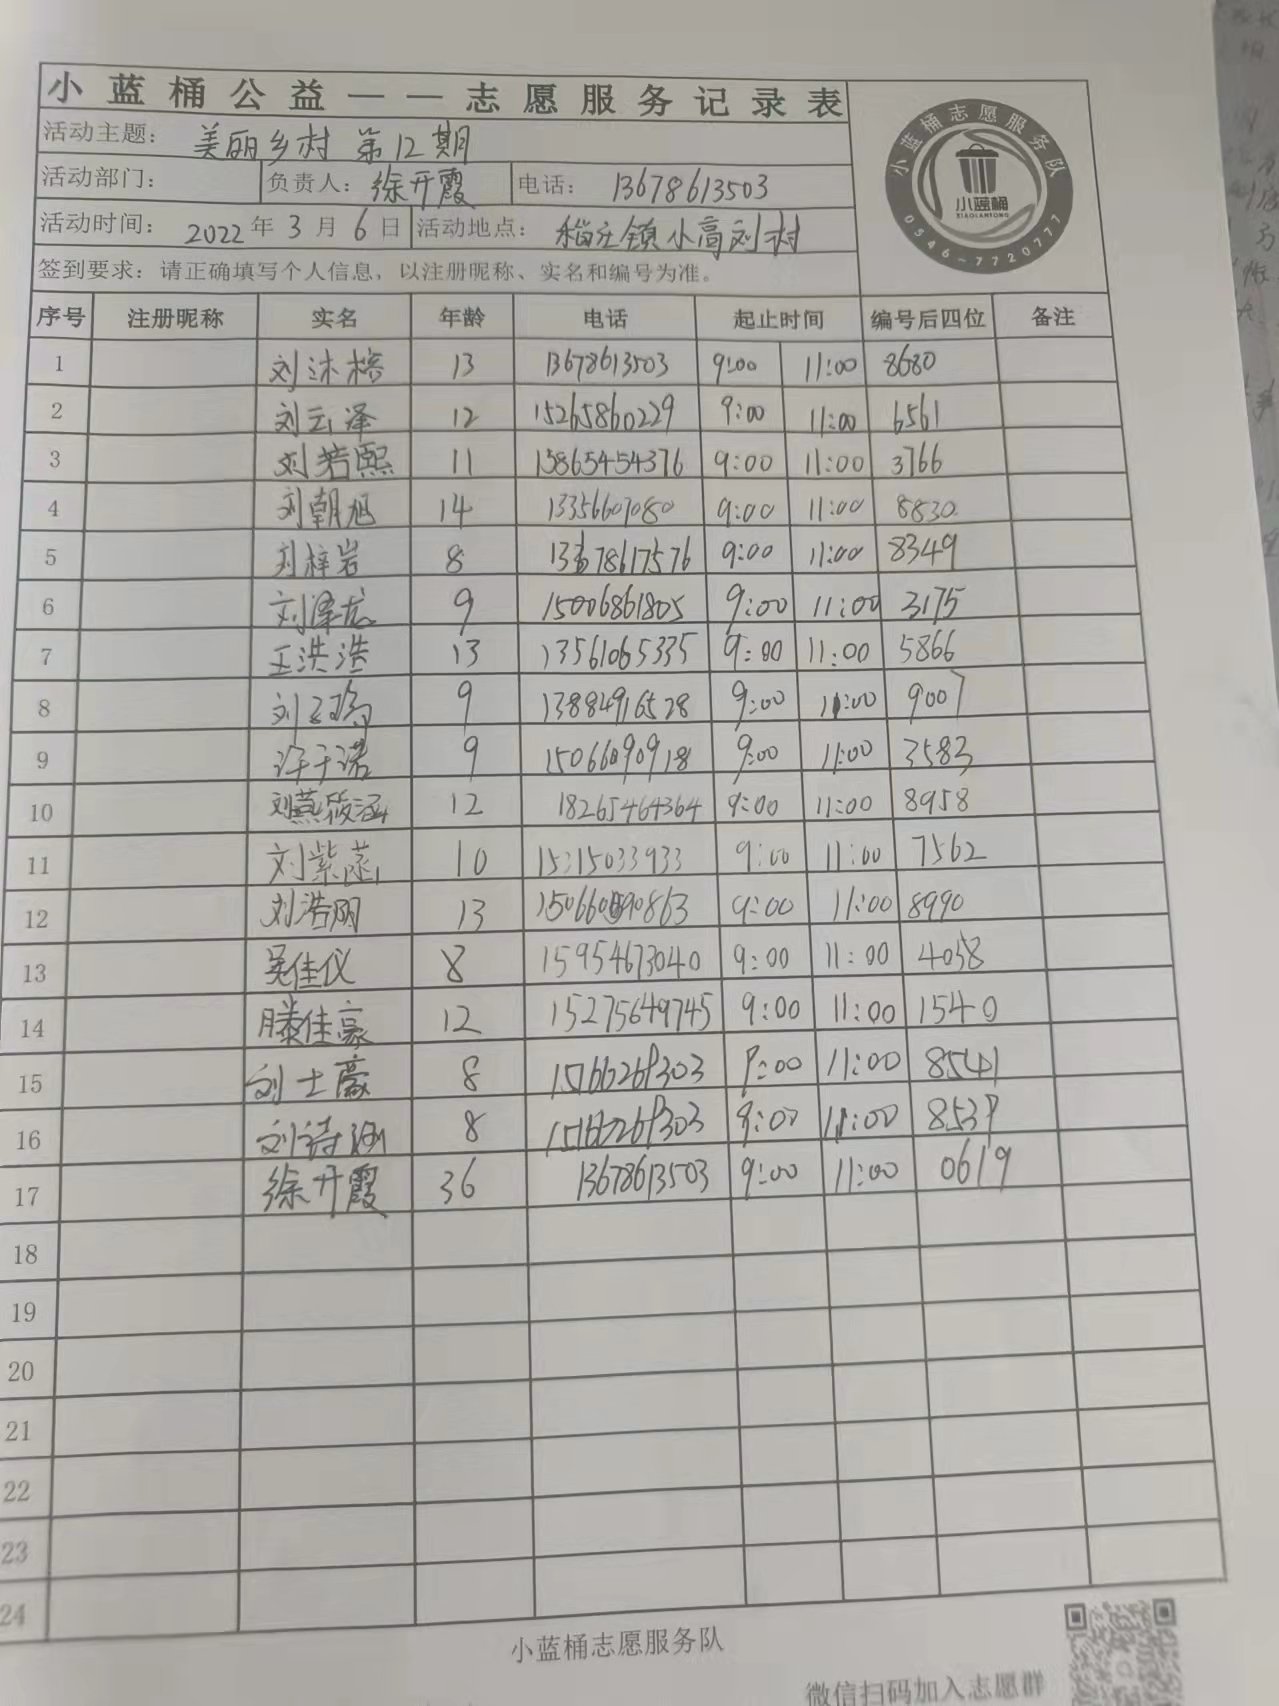 小蓝桶公益——志愿服务记录表
小蓝桶志愿服务队
小蓝桶
XIAOLANTONG
0546-7720777
活动主题： 美丽乡村 第12期
活动部门： 负责人：徐开霞 电话： 13678613503
活动时间： 2022年3月6日 活动地点： 稻庄镇小高刘村
签到要求：请正确填写个人信息，以注册昵称、实名和编号为准。
序号 注册昵称 实名 年龄 电话 起止时间 编号后四位 备注
1 刘沐榕 13 13678613503 9:00 11:00 8680
2 刘云泽 12 15265860229 9:00 11:00 6561
3 刘若熙 11 15865454376 9:00 11:00 3766
4 刘朝旭 14 13356601080 9:00 11:00 8830
5 刘梓岩 8 13678617576 9:00 11:00 8349
6 刘泽龙 9 15006861805 9:00 11:00 3175
7 王洪浩 13 13561065335 9:00 11:00 5866
8 刘 9 13884916528 9:00 11:00 9007
9 许于诺 9 15066090918 9:00 11:00 3583
10 刘燕筱涵 12 18265464364 9:00 11:00 8958
11 刘紫菡 10 15315033933 9:00 11:00 7562
12 刘浩阳 13 9:00 11:00 8990
13 吴佳仪 8 15954673040 9:00 11:00 4058
14 滕佳豪 12 15275649745 9:00 11:00 1540
15 刘士豪 8 9:00 11:00 8541
16 刘诗涵 8 9:00 11:00 8539
17 徐开霞 36 13678613503 9:00 11:00 0619
18
19
20
21
22
23
24
小蓝桶志愿服务队
微信扫码加入志愿群